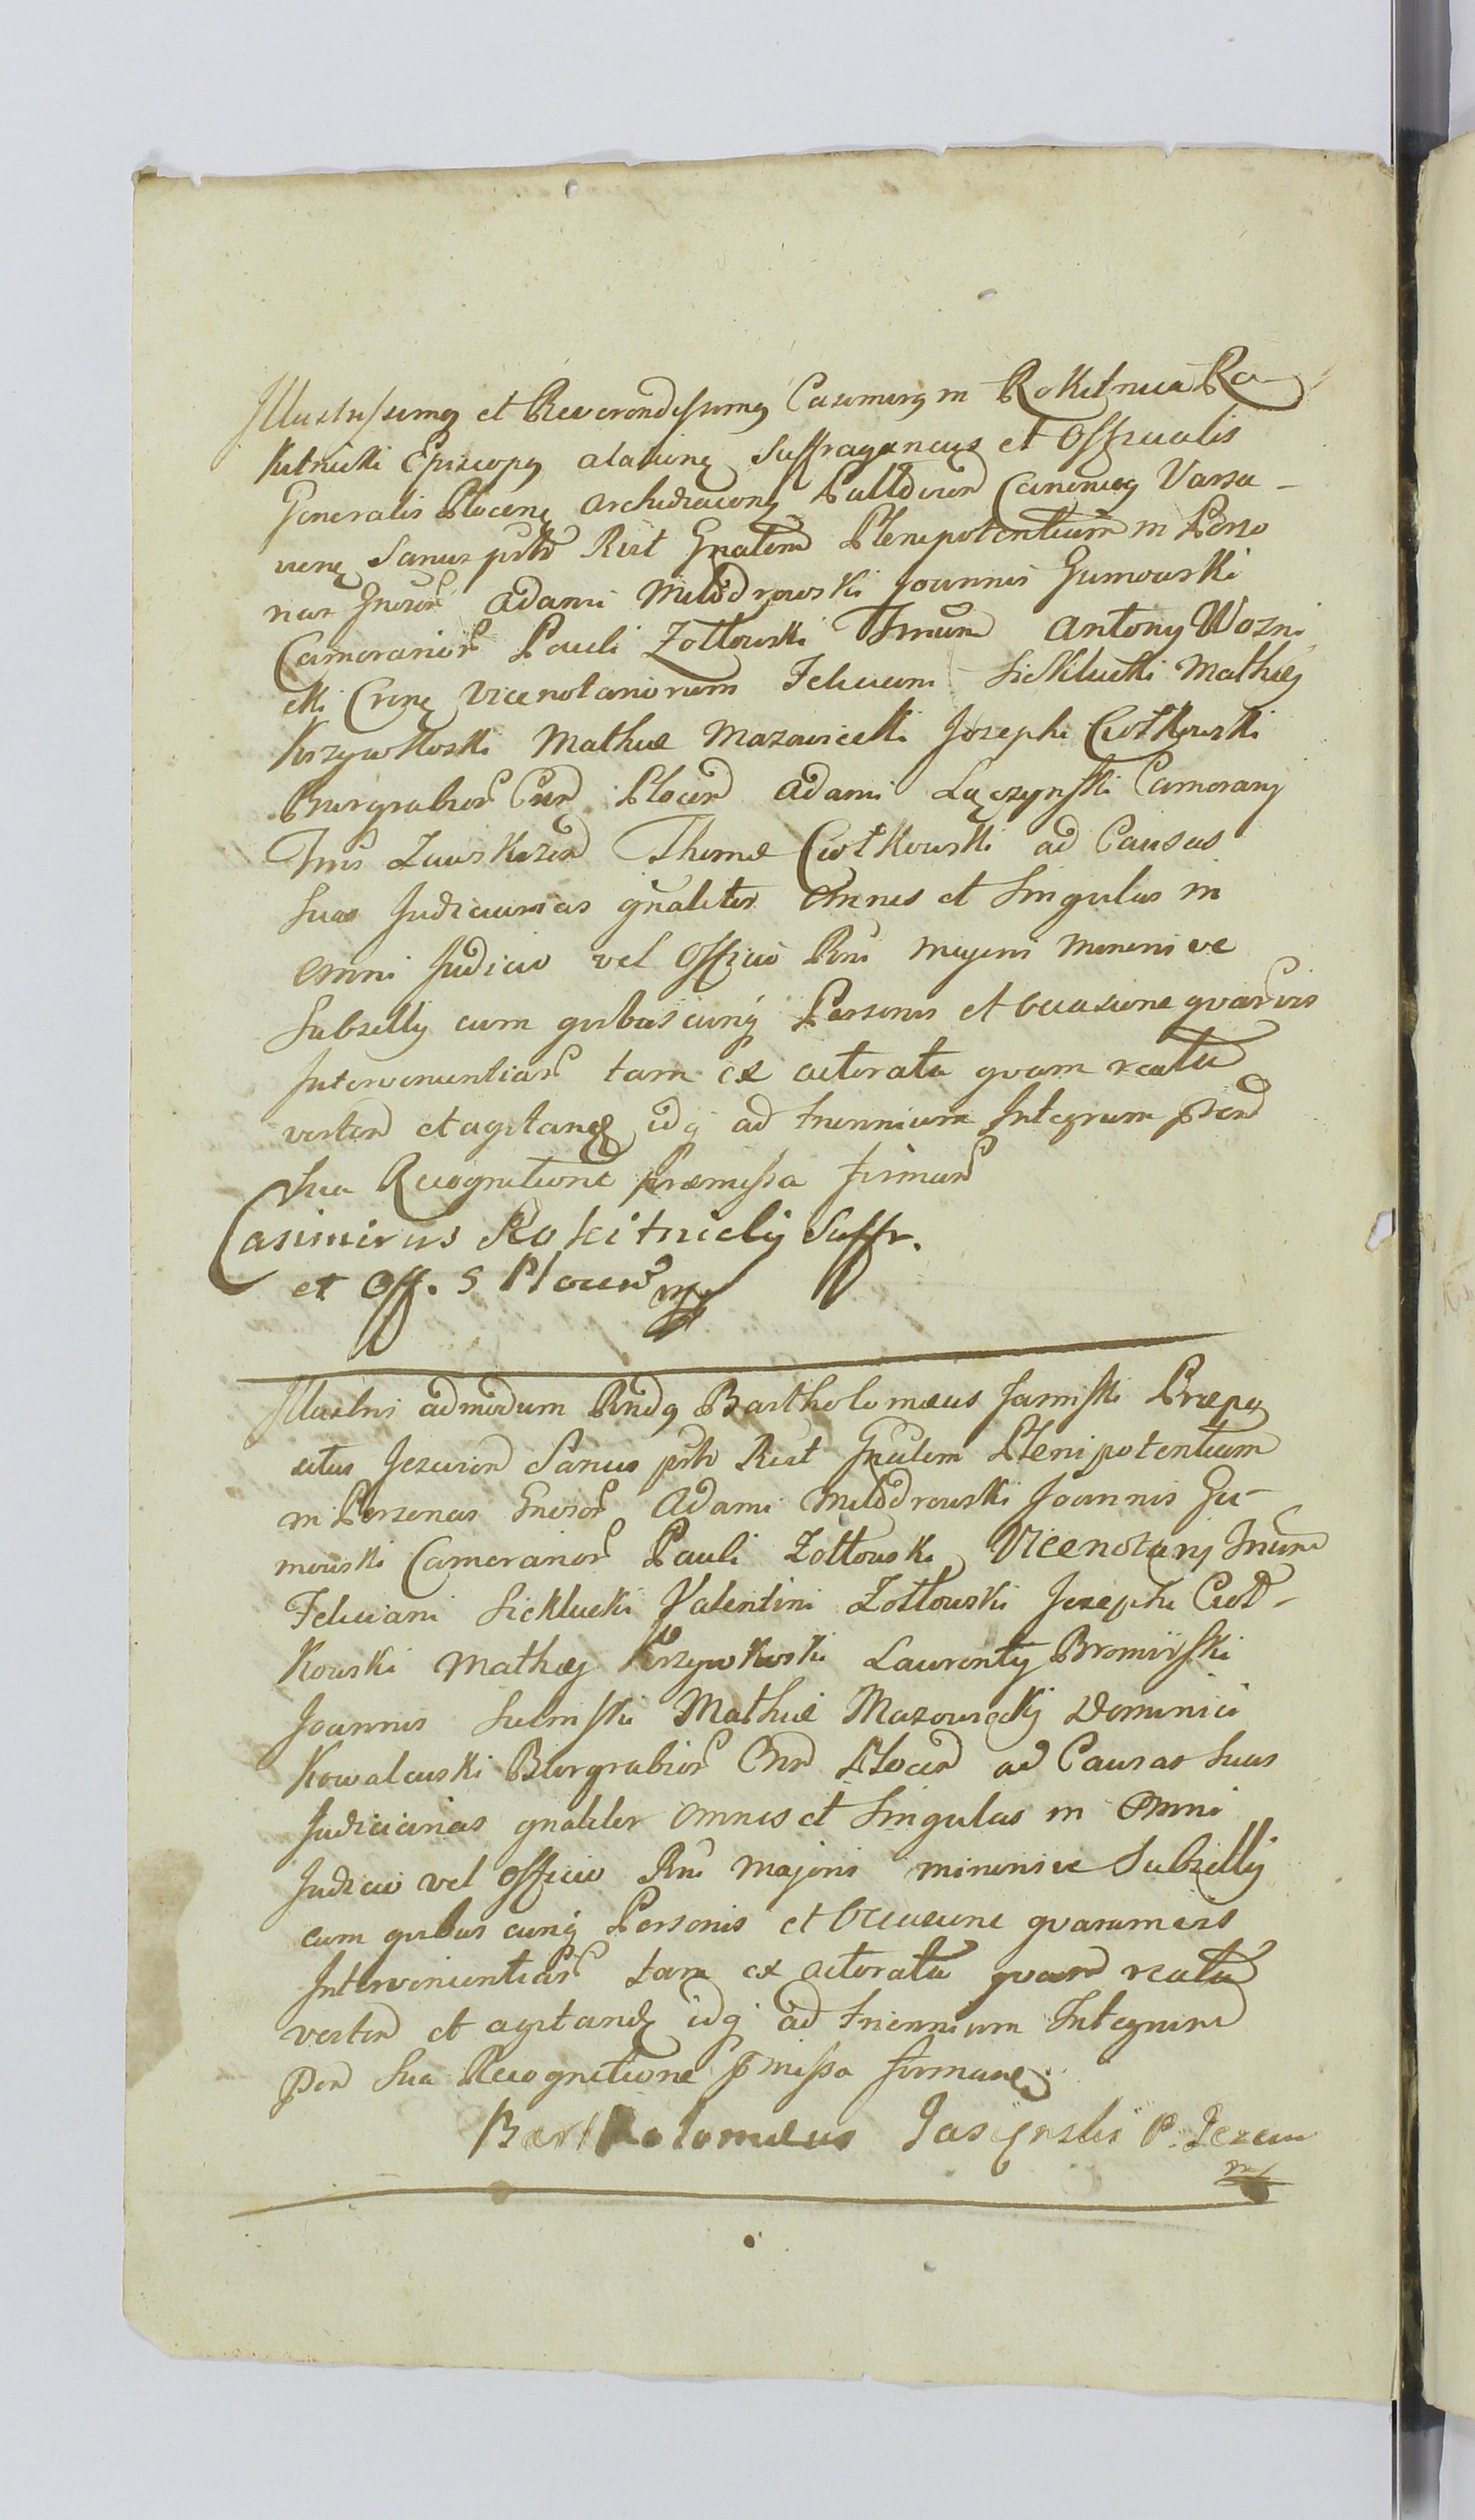 Illustrissimq et Reverendissimq Casimirq in Rokitnica Ro
kitnicki Episcopq Suffraganeus et Officialis
Generalis Plocenę Archidiaconq Canonicq Varsa-
vienę Sanus Rect Gnalem Plenipotentiam in Perso
nas Gnosor Adami Młodzowski Joannis Gumowski
Camerarior Pauli Zołtowski Antonij Wozni
cki Vicenotariorum Feliciani Siekłucki Mathiæ
Krzywkoski Mathiæ Mazowiecki Josephi Ciołkowski
Burgrabior Plocen Adami Łączynski Camerarij
Thomæ Ciołkowski ad Causas
suas Judiciarias gnaliter omnes et singulas in
omni Judicio vel Officio Rni majoris minorisve
Subsellij cum quibuscunq Personis et occasione quarumvis
Intervenientiar tam ex actoratu quam reatu
verten et agitandę idq ad triennium Integrum
sua Recognitione præmissa firman
Casimirus Rokitnicky Suffr.
et Off. G Plocen mp
Illustris admodum Rndq Bartholomæus Jasinski Præpo
situs Jezevien Sanus Rect Gnalem Plenipotentiam
in Personas Gnosor Adami Młodzowski Joannis Gu-
mowski Camerarior Pauli Zołtowski Vicenotarij
Feliciani Siekłucki Valentini Zołtowski Josephi Cioł-
kowski Mathiæ Krzywkoski Laurentij Bromirski
Joannis Mathiæ Mazowiecky Dominici
Kowalewski Burgrabior Plocen ad Causas suas
Judiciarias gnaliter omnes et singulas in omni
Judicio vel officio Rni majoris minorisve Subsellij
cum quibuscunq Personis et occasione quarumvis
Intervenientiar tam ex actoratu quam reatu
verten et agitandę idq ad triennium Integrum
sua Recognitione pmissa firman
Bartholomæus Jasynski P. Jezew
mp